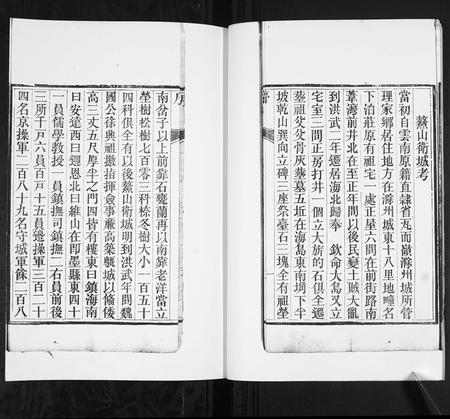 鰲山衛城考
當初自雲南原籍直隸省鳳陽府滁州城所管
理家鄉居住地方在滁州城東十八里地疃名
下泊莊原有祖宅一處正屋六間在前街路南
葦灣前井北在至正年間以後民變土賊大亂
到洪武二年遷居海北歸奉 欽命大島又立
宅室三間正房打井一個立大旂的石俱全遷
塟祖父父骨灰塟墓五坵在海島東南塲下半
坡乾山巽向立碑三座祭臺石一塊全有祖塋
南岔子以上前靠石甕蘭再以南靠老洋當立
塋樹松樹七百零三科棯冬樹大小一百五十
四科俱全有以後鰲山衛城明到洪武年間魏
國公徐輿祖揀指揮僉事廉高築甎城以俻倭
高三丈五尺厚半之門四皆有樓東曰鎭海南
曰安遠西曰迎恩北曰維山在即墨縣東四十
一員儒學教授一員鎮撫司鎮撫二右員前後
三所千戸六員百戸十五員邊操軍三百二十
四名京操軍二百八十九名守城軍餘二百八